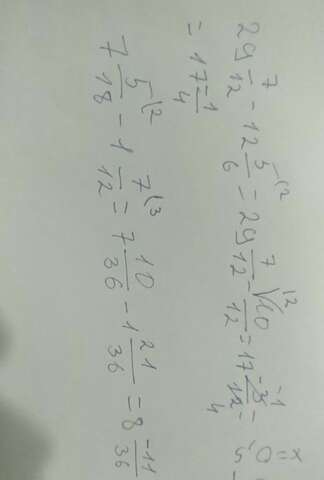 29 7/12 - 12 5/6 \2 = 29 7/12 - 12 10/12 = 17 -3/12 =
= 17 -1/4
7 5/18 \2 - 1 7/12 \3 = 7 10/36 - 1 21/36 = 8 -11/36
x=0,5